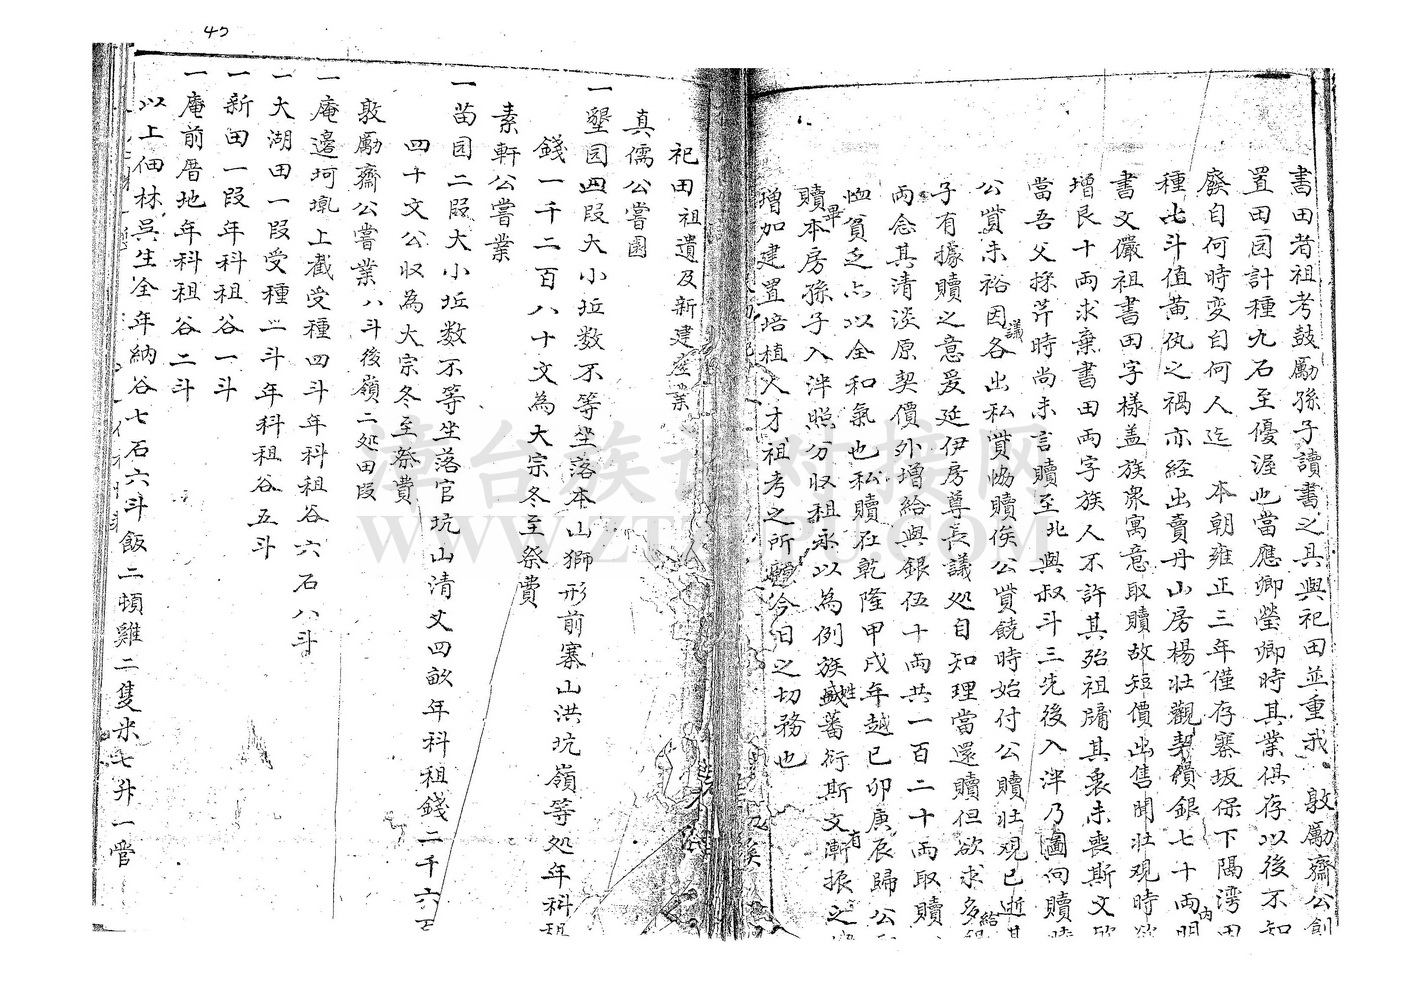 45
書田者祖考鼓勵孫子讀書之具與祀田並重我 敦勵齋公創
置田园計種九石至優渥也當應卿瑩卿時其業俱存以後不知
廢自何時变自何人迄 本朝雍正三年僅存寨坂保下隔湾田
種七斗值黄仇之禍亦経出賣丹山房楊壮觀契價銀七十両明
書文儼祖書田字樣盖族衆寓意取贖故短價出售聞壮观時欲
增艮十両求棄書田両字族人不許其殆祖牖其衷未喪斯文欤
當吾父採芹時尚未言贖至北與叔斗三先後入泮乃圖向贖時
公貲未裕因議各出私貲恊贖俟公貲饒時始付公贖壮观已逝其
子有據贖之意爰延伊房尊長議处自知理當還贖但欲求多給
両念其清淡原契價外增給與銀伍十両共一百二十両取贖
恤貧乏亦以全和氣也私贖在乾隆甲戌年越己卯庚辰歸公
贖畢本房孫子入泮照分収租永以為例族姓蕃衍斯文漸有振之
增加建置培植人才祖考之所願今日之切務也
祀田祖遺及新建產業
真儒公嘗園
一墾园四叚大小坵数不等坐落本山獅形前寨山洪坑嶺等处年科租
錢一千二百八十文為大宗冬至祭費
素軒公嘗業
一苗园二叚大小坵数不等坐落官坑山清丈四畝年科租錢二千六百
四十文公収為大宗冬至祭費
敦勵齋公嘗業八斗後嶺二处田叚
一庵邉坷壠上截受種四斗年科租谷六石八斗
一大湖田一叚受種二斗年科租谷五斗
一新田一叚年科租谷一斗
一庵前厝地年科祖谷二斗
以上佃林吳生全年納谷七石六斗飯二頓雞二隻米七升一管
漳台族谱对接网
WWW.ZTZUPU.COM